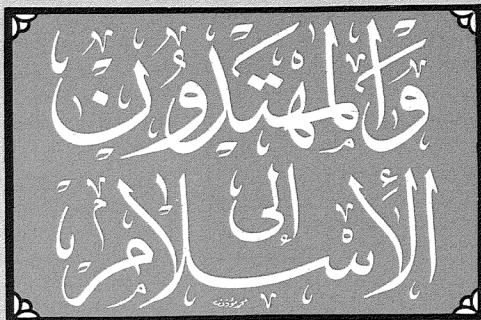 وَالمُهْتَدُونَ
إلى
الإِسْلَام